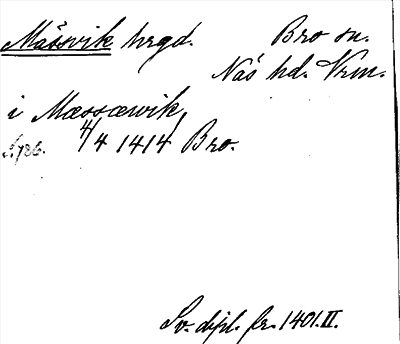 Måssvik hrgd. Bro sn.
Näs hd. Vrm.
i Mæssæwik,
4/4 1414 Bro.
Sv. dipl. fr. 1401. II.